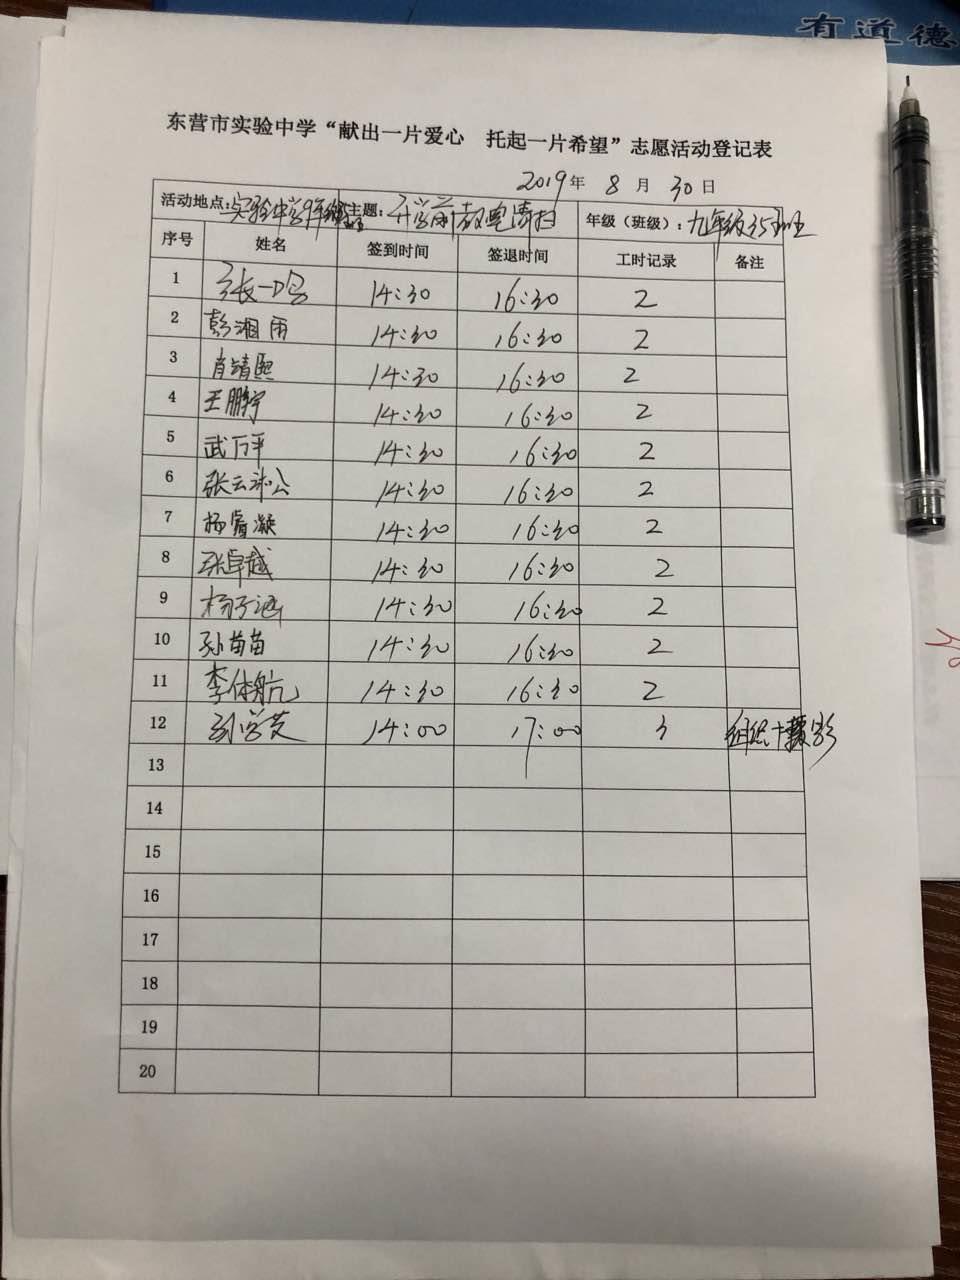 有道德
东营市实验中学“献出一片爱心 托起一片希望”志愿活动登记表
2019年 8 月 30日
活动地点: 实验中学9年级 主题: 开学前教室清扫 年级（班级）: 九年级35班
序号 姓名 签到时间 签退时间 工时记录 备注
1 张一鸣 14:30 16:30 2
2 彭湘雨 14:30 16:30 2
3 肖靖熙 14:30 16:30 2
4 王鹏宇 14:30 16:30 2
5 武万平 14:30 16:30 2
6 张云 14:30 16:30 2
7 杨睿凝 14:30 16:30 2
8 张卓越 14:30 16:30 2
9 杨子涵 14:30 16:30 2
10 孙苗苗 14:30 16:30 2
11 李航 14:30 16:30 2
12 14:00 17:00 3 组织+摄影
13
14
15
16
17
18
19
20